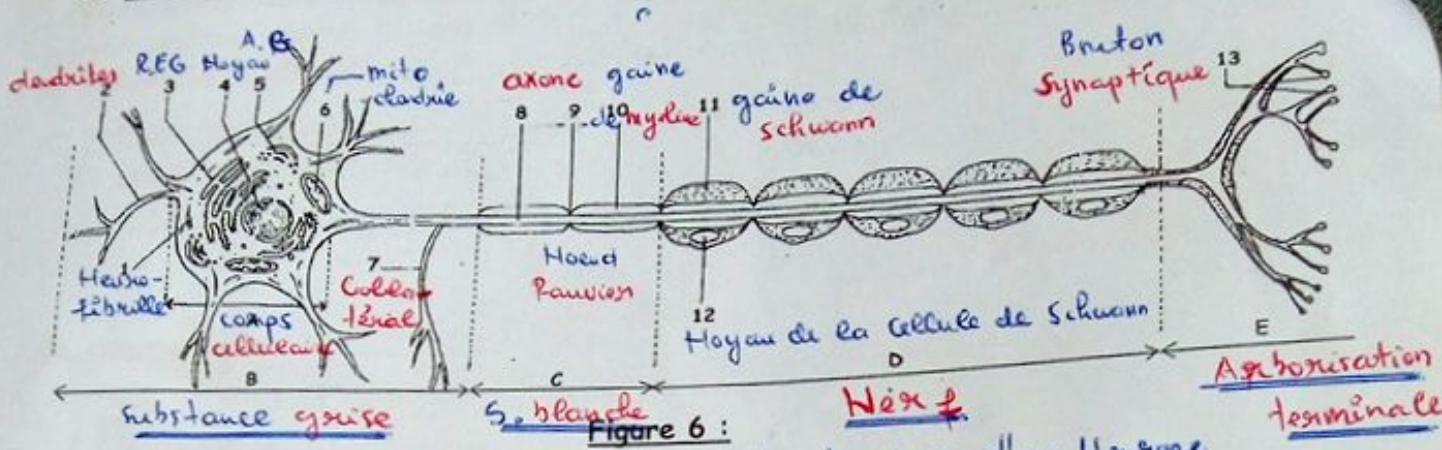 A.G
dendrites
R.EG Noyau
mito
chodrie
2 3 4 5 6
axone gaine
de myline
8 9 10 11
gaine de
schwann
Bouton
Synaptique
13
1
Neuro-
fibrille
A
corps
cellulaire
7
Colla
térial
Noeud
Ranvier
12
Noyau de la cellule de Schwann
B C D E
Substance grise
S. blanche
Nerf
Arborisation
terminale
Figure 6 :